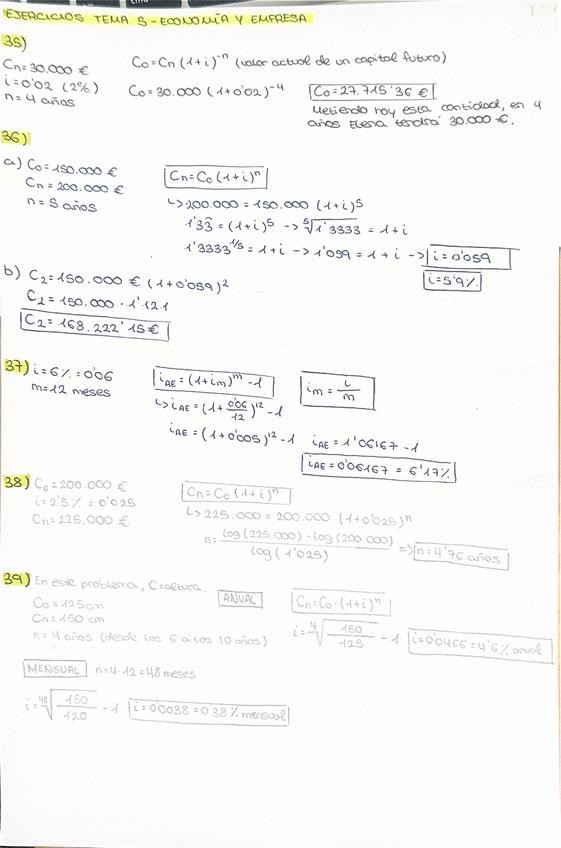 EJERCICIOS TEMA 5 - ECONOMÍA Y EMPRESA
35)
Cn = 30.000 € Co = Cn (1+i)⁻ⁿ (valor actual de un capital futuro)
i = 0'02 (2%)
n = 4 años Co = 30.000 (1+0'02)⁻⁴ Co = 27.715'36 €
Metiendo hoy esta cantidad, en 4
años Elena tendrá 30.000 €.
36)
a) Co = 150.000 € Cn = Co (1+i)ⁿ
Cn = 200.000 €
n = 5 años ↳ 200.000 = 150.000 (1+i)⁵
1'33 = (1+i)⁵ -> ⁵√1'3333 = 1+i
1'3333^1/5 = 1+i -> 1'059 = 1+i -> i = 0'059
i = 5'9%
b) C₂ = 150.000 € (1+0'059)²
C₂ = 150.000 · 1'121
C₂ = 168.222'15 €
37) i = 6% = 0'06 iAE = (1+im)ᵐ - 1 im = i/m
m = 12 meses
↳ iAE = (1 + 0'06/12)¹² - 1
iAE = (1+0'005)¹² - 1 iAE = 1'06167 - 1
iAE = 0'06167 = 6'17%
38) Co = 200.000 € Cn = Co (1+i)ⁿ
i = 2'5% = 0'025
Cn = 225.000 € ↳ 225.000 = 200.000 (1+0'025)ⁿ
n = log (225.000) - log (200.000) / log (1'025) => n = 4'76 años
39) En este problema, C = altura.
ANUAL Cn = Co · (1+i)ⁿ
Co = 125 cm
Cn = 150 cm
n = 4 años (desde los 6 a los 10 años) i = ⁴√150/125 - 1 i = 0'0466 = 4'6% anual
MENSUAL n = 4 · 12 = 48 meses
i = ⁴⁸√150/120 - 1 i = 0'0038 = 0'38% mensual